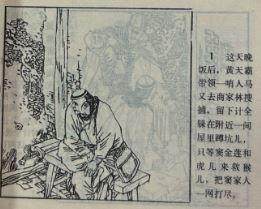 1 这天晚
饭后，黄天霸
带领一哨人马
又去商家林搜
捕，留下计全
躲在附近一间
屋里蹲坑儿，
只等窦金莲和
虎儿来救猴
儿，把窦家人
一网打尽。